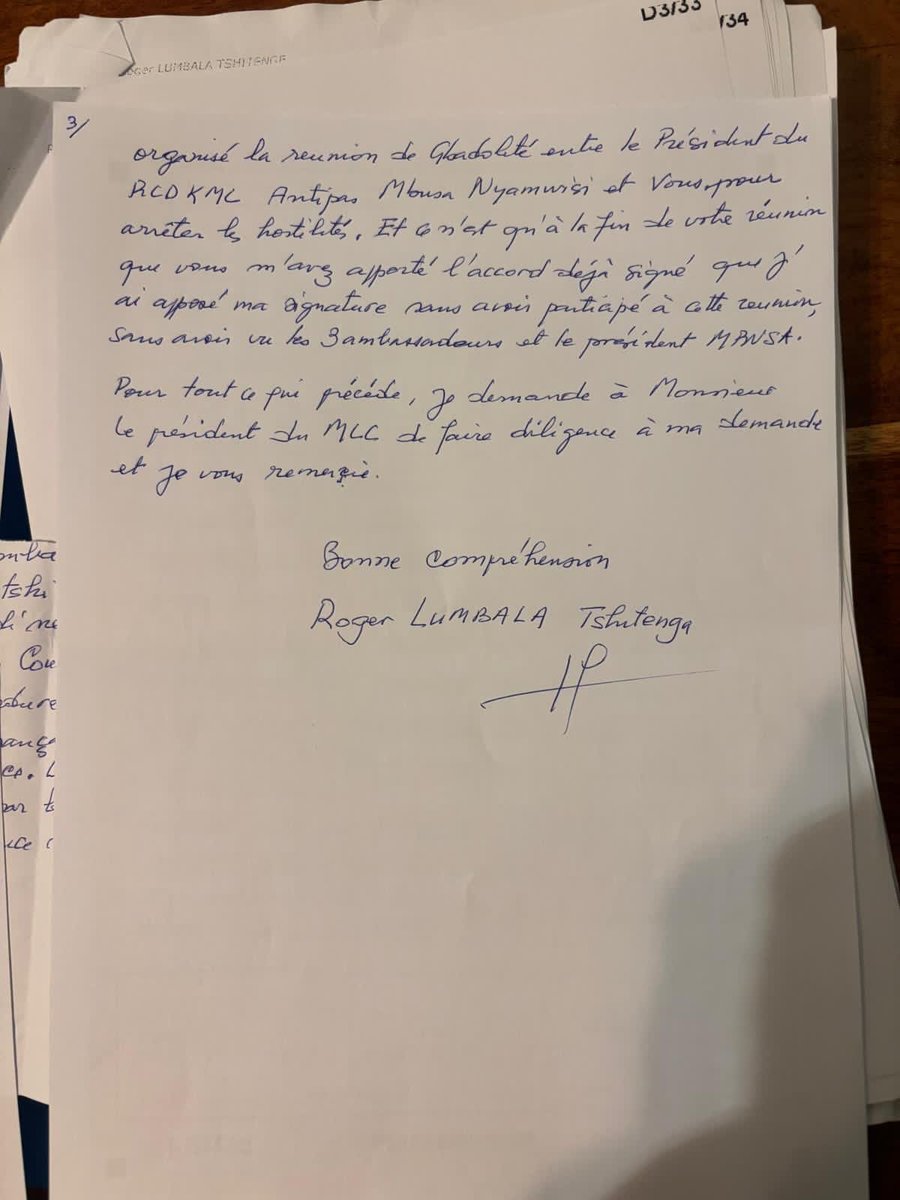 D3/33
/34
Roger LUMBALA TSHITENGE
3/
organisé la reunion de Gbadolité entre le Président du
RCD KML Antipas Mbusa Nyamwisi et Vous, pour
arrêter les hostilités. Et ce n'est qu'à la fin de votre réunion
que vous m'avez apporté l'accord déjà signé que j'
ai apposé ma signature sans avoir participé à cette reunion,
sans avoir vu les 3 ambassadeurs et le président
Pour tout ce qui précède, je demande à Monsieur
le président du MLC de faire diligence à ma demande
et je vous remerçie.
Bonne Compréhension
Roger LUMBALA Tshitenga
tski
Cou